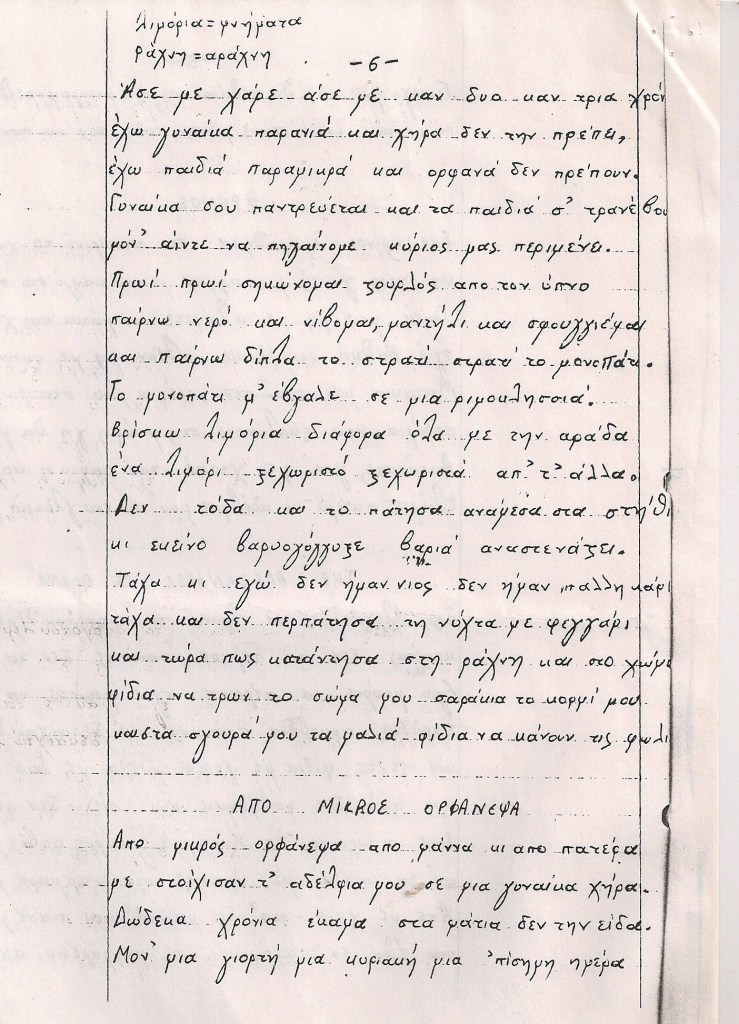 λιμόρια = μνήματα
ράχνη = αράχνη
- 6 -
Άσε με χάρε άσε με καν δυο καν τρια χρόν
έχω γυναίκα παρανιά και χήρα δεν την πρέπει,
έχω παιδιά παραμικρά και ορφανά δεν πρέπουν.
Γυναίκα σου παντρεύεται και τα παιδιά σ' τρανεβου
μόν' άιντε να πηγαίνομε κύριος μας περιμένει.
Πρωί πρωί σηκώνομαι ζουρλός απο τον ύπνο
παίρνω νερό και νίβομαι, μαντήλι και σφουγγιέμαι
και παίρνω δίπλα το στρατί στρατί το μονοπάτι.
Το μονοπάτι μ' έβγαλε σε μια ριμοκλησσιά.
Βρίσκω λιμόρια διάφορα όλα με την αράδα
ένα λιμόρι ξεχωριστό ξεχωριστά απ' τ' άλλα.
Δεν τόδα και το πάτησα ανάμεσα στα στήθι
κι εκείνο βαρυογόγγυξε βαριά αναστενάζει.
Τάχα κι εγώ δεν ήμαν νιος δεν ήμαν παλληκάρι
τάχα και δεν περπάτησα τη νύχτα με φεγγάρι
και τώρα πως κατάντησα στη ράχνη και στο χώμα
φίδια να τρων το σώμα μου σαράκια το κορμί μου
και στα σγουρά μου τα μαλιά φίδια να κάνουν τις φωλι
ΑΠΟ ΜΙΚΡΟΣ ΟΡΦΑΝΕΨΑ
Απο μικρός ορφάνεψα απο μάννα κι απο πατέρα
με στοίχισαν τ' αδέλφια μου σε μια γυναίκα χήρα.
Δώδεκα χρόνια έκαμα στα μάτια δεν την είδα.
Μον' μια γιορτή μια κυριακή μια 'πίσημη ημέρα